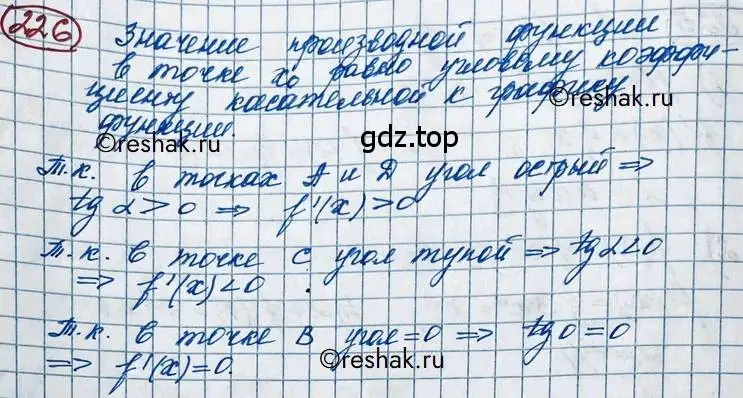 226
Значение производной функции
в точке x₀ равно угловому коэффи-
циенту касательной к графику
©reshak.ru
функции.
©reshak.ru
gdz.top
Т.к. в точках А и D угол острый ⇒
tg α > 0 ⇒ f'(x) > 0
Т.к. в точке С угол тупой ⇒ tg α < 0
⇒ f'(x) < 0.
©reshak.ru
Т.к. в точке В угол = 0 ⇒ tg 0 = 0
⇒ f'(x) = 0.
©reshak.ru